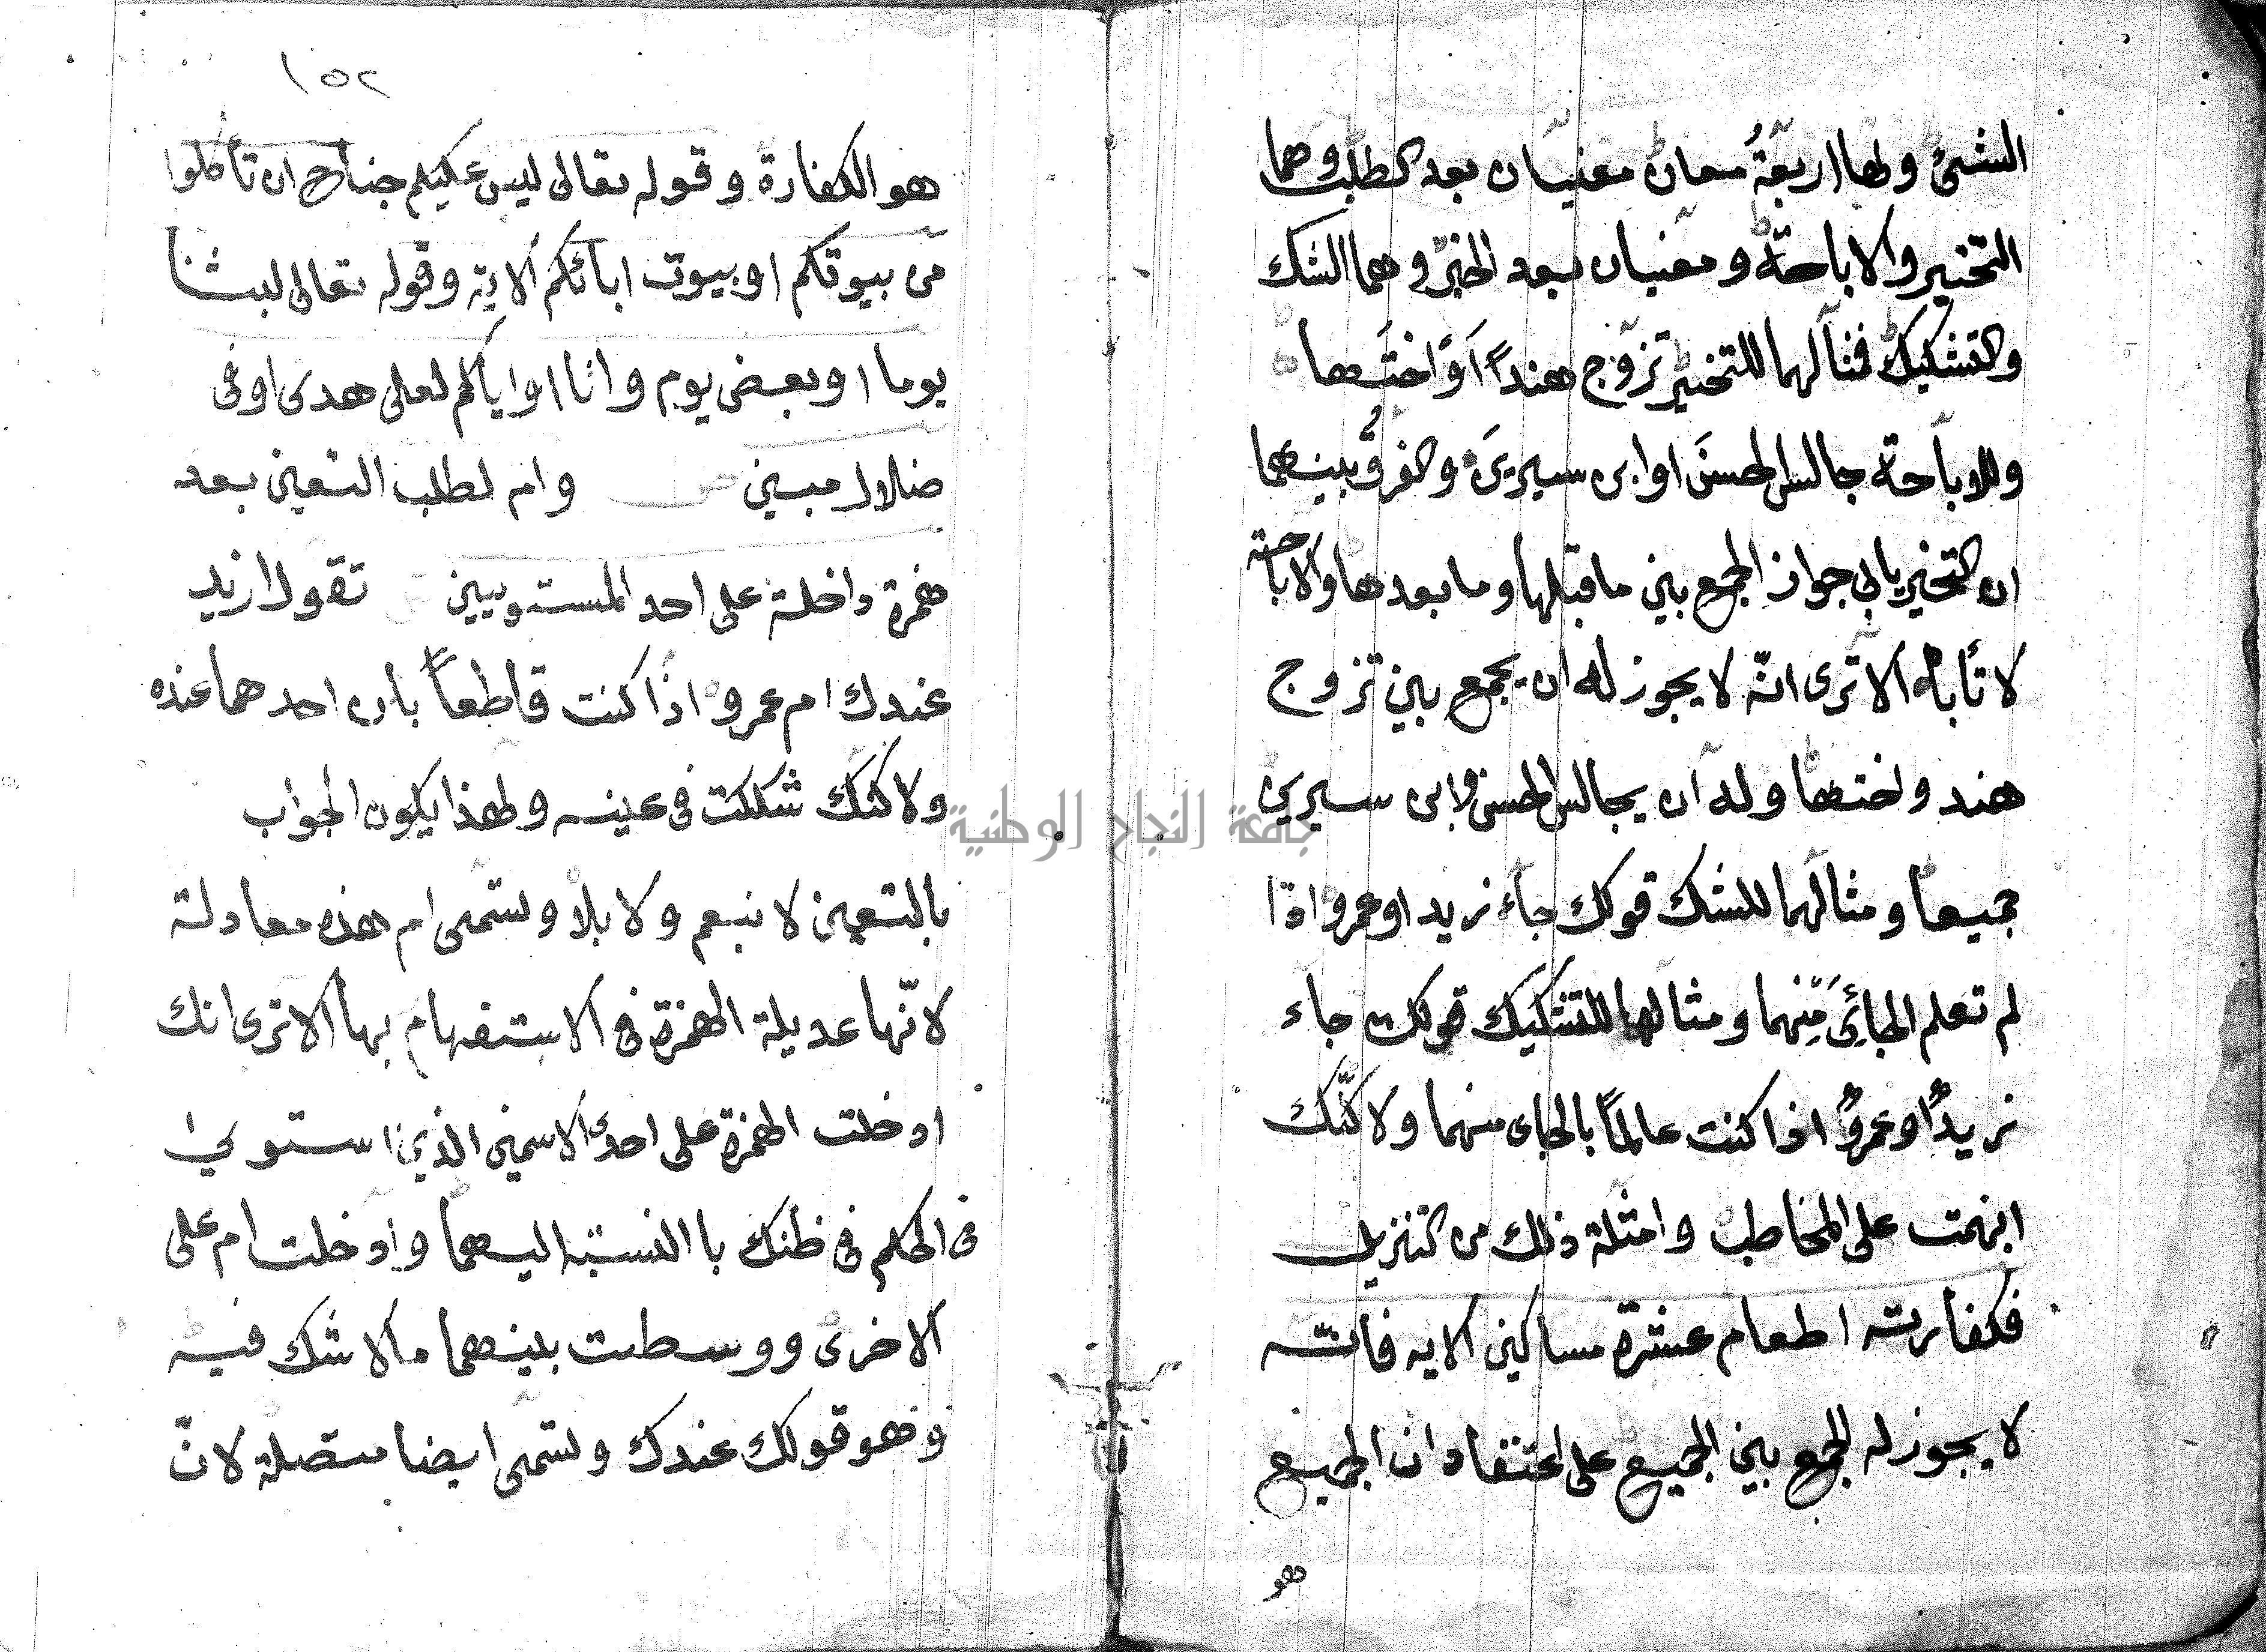 الشئ ولها اربعةُ معان معنيان بعد الطلب وهما
التخيير والاباحة ومعنيان بعد الخبر وهما الشك
والتشكيك فمثالهما للتخيير تزوج هنداً اَوْ اختَها
وللاباحة جالس الحسنَ او ابن سيرينَ والفرقُ بينهما
ان التخيير يابى جواز الجمع بين ما قبلها وما بعدها والاباحة
لا تأباه الا ترى انّه لا يجوز له ان يجمع بين تزوج
هند واختها وله ان يجالس الحسن وابن سيرين
جميعا ومثالهما للشك قولك جاء زيد او عمرو اذا
لم تعلم الجائَي مّنهما ومثالها للتشكيك قولك جاء
زيدٌ او عمروٌ اذا كنت عالماً بالجاى منهما ولاكنّك
ابهمت على المخاطب وامثلة ذلك من التنزيل
فكفارته اطعام عشرة مساكين الايه فانّه
لا يجوز له الجمع بين الجميع على اعتقاد ان الجميع
هو
١٥٢
هو الكفارة وقوله تعالى ليس عليكم جناح ان تأكلوا
من بيوتكم او بيوت ابائكم الاية وقوله تعالى لبثنا
يوما او بعض يوم وانا او اياكم لعلى هدى او فى
ضلال مبين وام لطلب التعين بعد
همزة داخلة على احد المستويين تقول ازيد
عندك ام عمرو اذا كنت قاطعاً بان احدهما عنده
ولاكنك شككت فى عينه ولهذا يكون الجواب
بالتعين لا بنعم ولا بلا وتسمى ام هذه معادلة
لانّها عديلة الهمزة فى الاستفهام بها الا ترى انك
ادخلت الهمزة على احد الاسمين الذين استوى
فى الحكم فى ظنك با النسبة اليهما وادخلت ام على
الاخرى ووسطت بينهما مالا شك فيه
وهو قولك عندك وتسمى ايضا متصلة لانّ
جامعة النجاح الوطنية